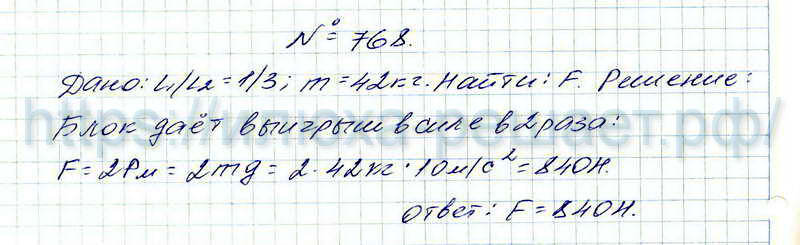 № 768.
Дано: L1/L2 = 1/3; m = 42кг. Найти: F. Решение:
Блок даёт выигрыш в силе в 2 раза:
F = 2Pм = 2mg = 2 · 42кг · 10м/с² = 840Н.
Ответ: F = 840Н.